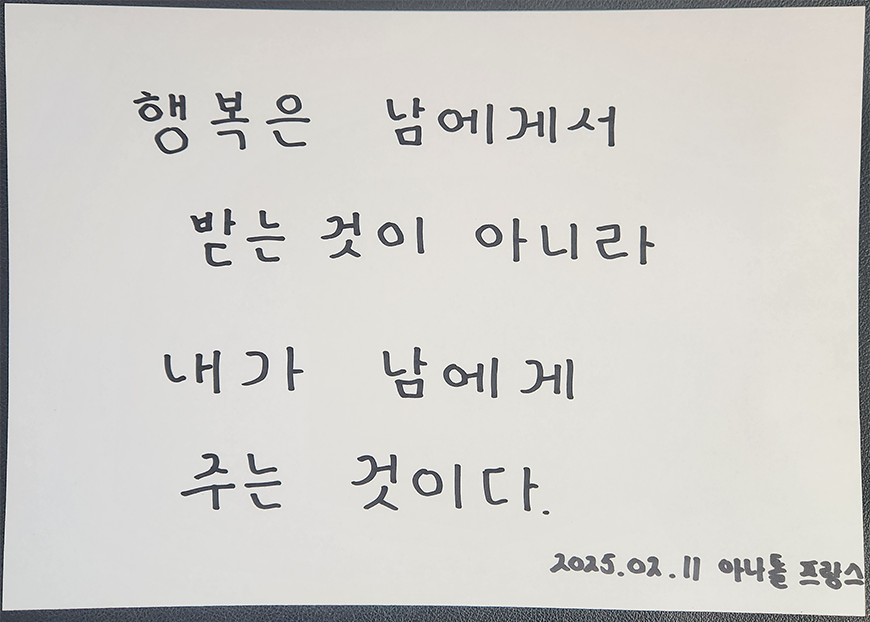 행복은 남에게서
받는 것이 아니라
내가 남에게
주는 것이다.
2025.02.11 아나톨 프랑스